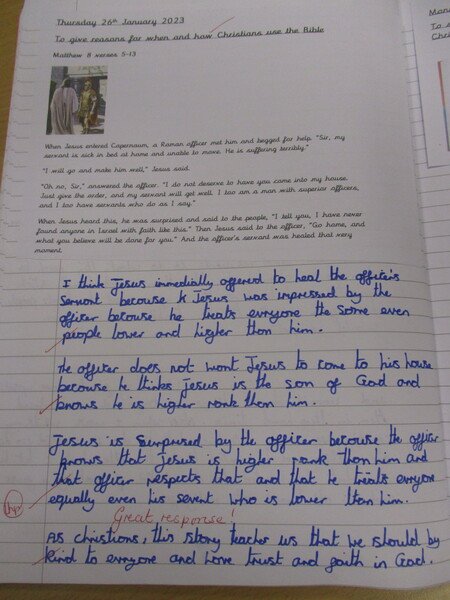 Thursday 26th January 2023
To give reasons for when and how Christians use the Bible
Matthew 8 verses 5-13
When Jesus entered Capernaum, a Roman officer met him and begged for help. "Sir, my
servant is sick in bed at home and unable to move. He is suffering terribly."
"I will go and make him well," Jesus said.
"Oh no, Sir," answered the officer. "I do not deserve to have you come into my house.
Just give the order, and my servant will get well. I too am a man with superior officers,
and I too have servants who do as I say."
When Jesus heard this, he was surprised and said to the people, "I tell you, I have never
found anyone in Israel with faith like this." Then Jesus said to the officer, "Go home, and
what you believe will be done for you." And the officer's servant was healed that very
moment.
I think Jesus immedially offered to heal the officers
servant because Jesus was impressed by the
officer because he treats evryone the same even
people lower and higher than him.
He officer does not want Jesus to come to his house
because he thinks Jesus is the son of God and
knows he is higher rank them him.
Jesus is surprised by the officer because the officer
knows that Jesus is higher rank than him and
that officer respects that and that he treats evryone
equally even his sevent who is lower than him.
Great response!
As christians, this story teacher us that we should by
kind to evryone and have trust and gaith in God.
Man
To s
Chri